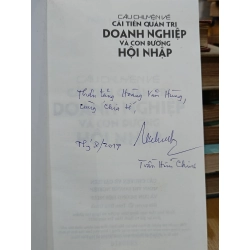 CÂU CHUYỆN VỀ
CẢI TIẾN QUẢN TRỊ
DOANH NGHIỆP
VÀ CON ĐƯỜNG
HỘI NHẬP
Thân tặng Hoàng Văn Hùng,
cùng chia sẻ,
Trần Hữu Chinh